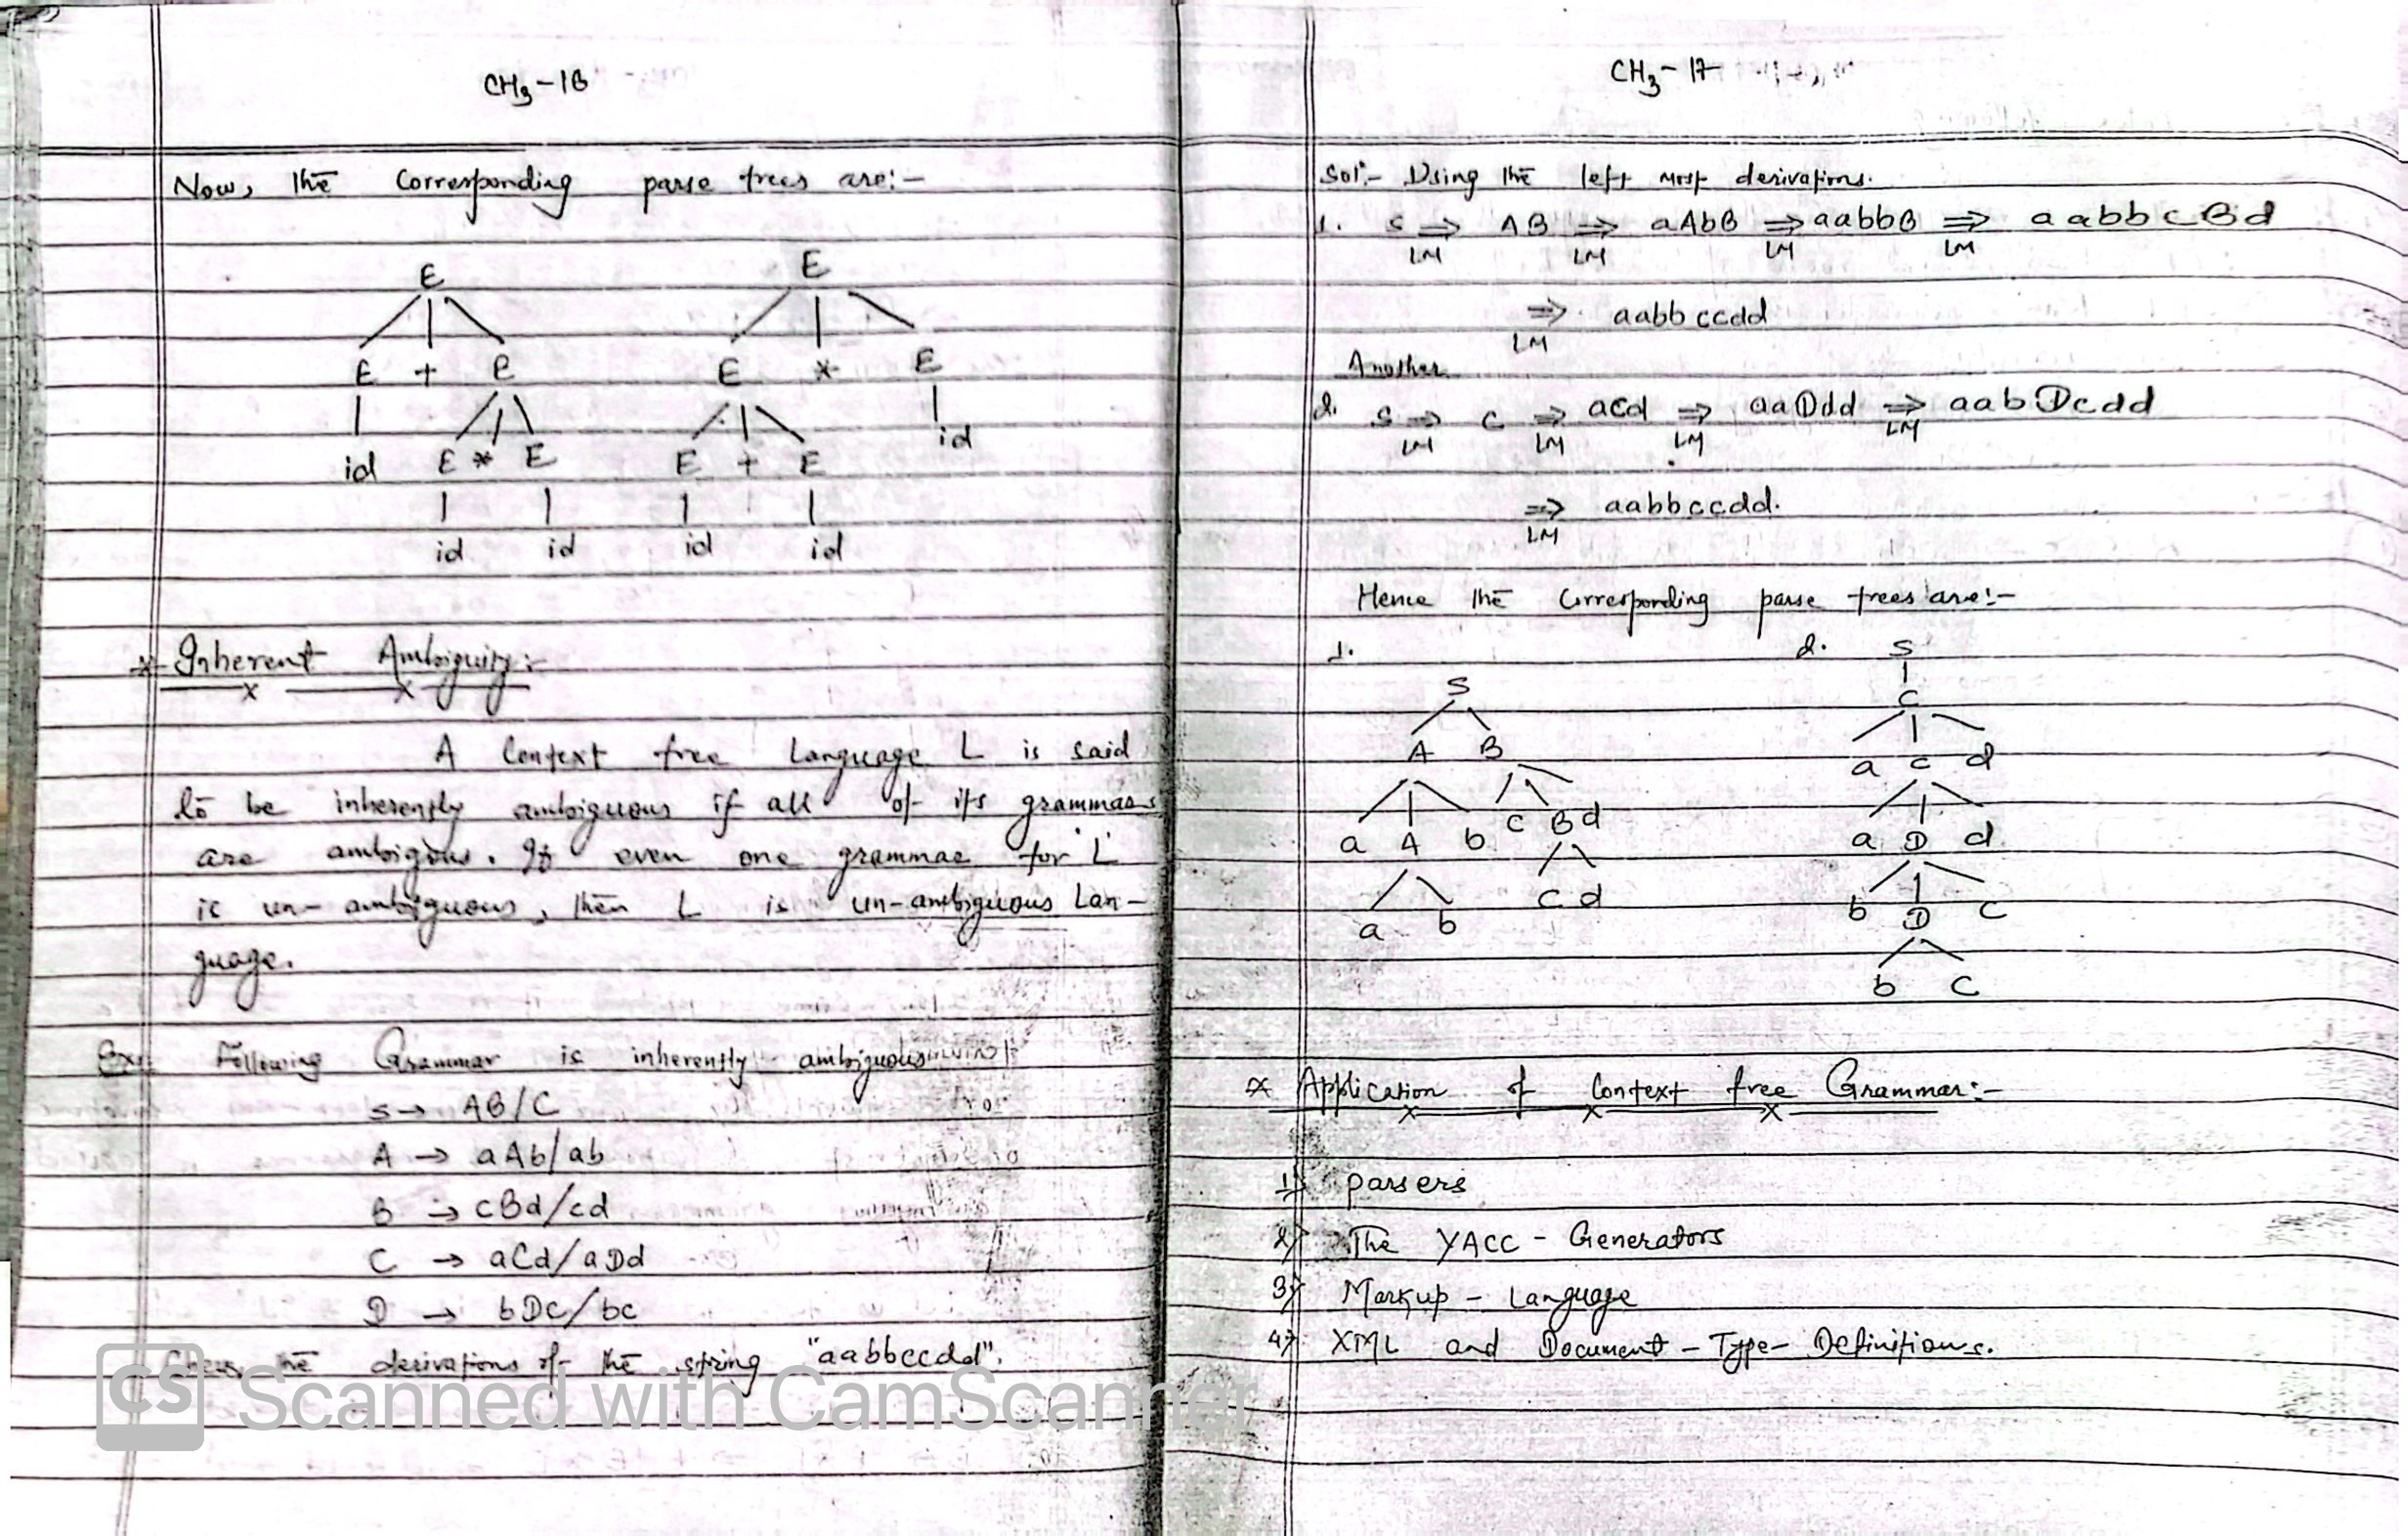 CH3-16
Now, the Corresponding parse trees are:-
E E
E + E E * E
id E * E E + E id
id id id id
* Inherent Ambiguity:-
A Context free Language L is said
to be inherently ambiguous if all of its grammars
are ambigous. If even one grammar for L
is un-ambiguous, then L is un-ambiguous Lan-
guage.
Ex:- Following Grammar is inherently ambiguous
S → AB/C
A → aAb/ab
B → cBd/cd
C → aCd/aDd
D → bDc/bc
the derivations of the string "aabbccdd".
CS Scanned with CamScanner
CH3-17
Sol:- Using the left most derivations.
1. S ⇒ AB ⇒ aAbB ⇒ aabbB ⇒ aabbcBd
LM LM LM LM
⇒ aabbccdd
LM
Another
2. S ⇒ C ⇒ aCd ⇒ aaDdd ⇒ aabDcdd
LM LM LM LM
⇒ aabbccdd.
LM
Hence the Corresponding parse trees are:-
1. 2. S
S C
A B a C d
a A b c B d a D d
a b c d b D c
b c
* Application of Context free Grammar:-
1) parsers
2) The YACC - Generators
3) Markup - Language
4) XML and Document - Type - Definitions.